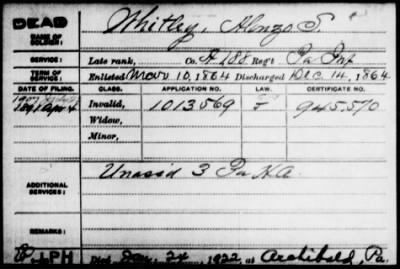 DEAD
NAME OF SOLDIER: Whitley, Alonzo S.
SERVICE: Late rank, Co. H 188 Reg't Pa Inf
TERM OF SERVICE: Enlisted Mar 10, 1864 Discharged Dec. 14, 1864
DATE OF FILING. CLASS. APPLICATION NO. LAW. CERTIFICATE NO.
Invalid, 1013569 F 945570
Widow,
Minor,
ADDITIONAL SERVICES: Unass'd 3 Pa H.A.
REMARKS:
Died 24, 1922, at Archibald, Pa.